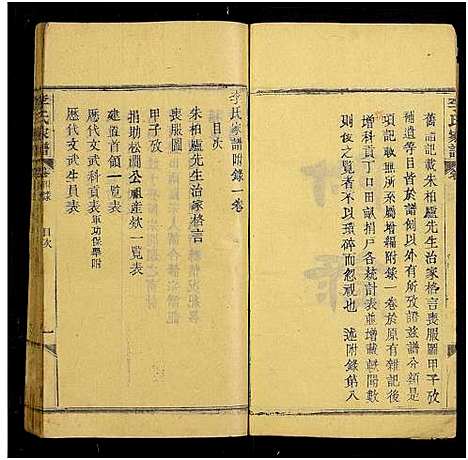 舊譜記載朱柏廬先生治家格言喪服圖甲子攷
補遺等目皆於譜側以外有所攷證茲譜分類是
以無所系屬增編附錄一卷於原有雜記後
增科貢丁口田畝捐戶各統計表並增載軼聞數
則之覽者不以瑣碎而忽視也 述附錄第八
李氏家譜
李氏家譜附錄一卷
目次
朱柏廬先生治家格言
喪服圖
甲子攷
捐助松澗公祖產款一覽表
建置首領一覽表
歷代文武科貢表軍功保舉附
歷代文武生員表
李氏家譜
附錄
目次